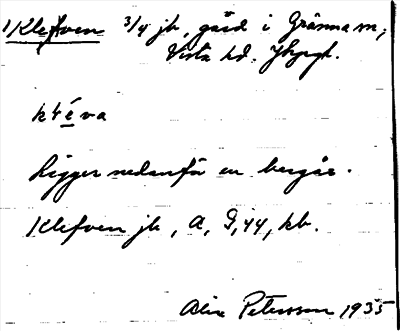 1 Klefven 3/4 jb, gård i Gränna sn,
Vista hd. Jkpgt.
kléva
Ligger nedanför en bergås.
Klefven jb, A, G, 44, kb.
Petersson 1935